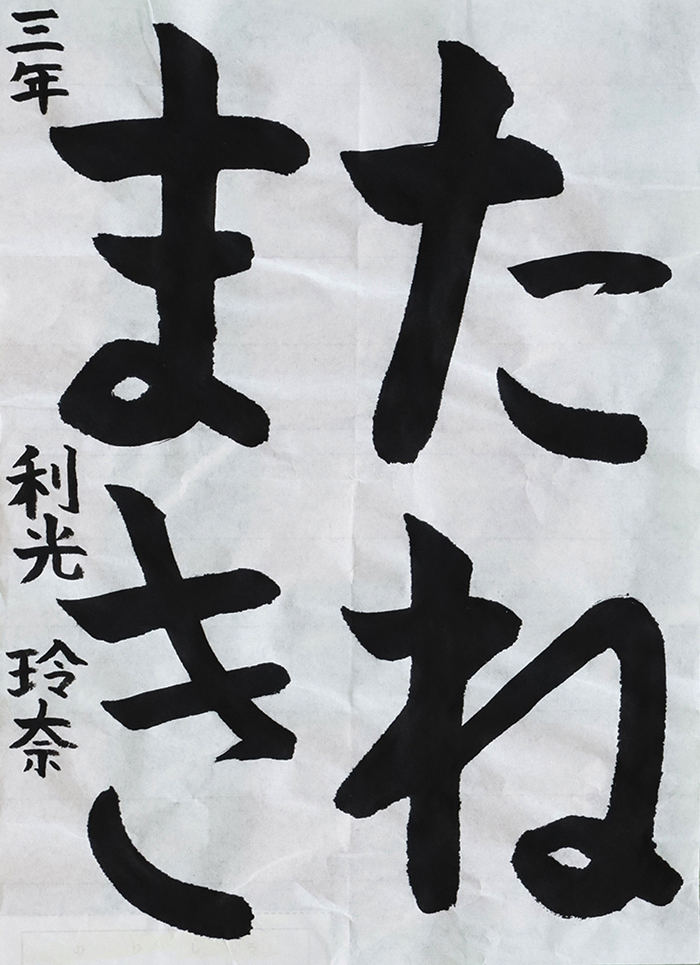 たね
まき
三年 利光 玲奈